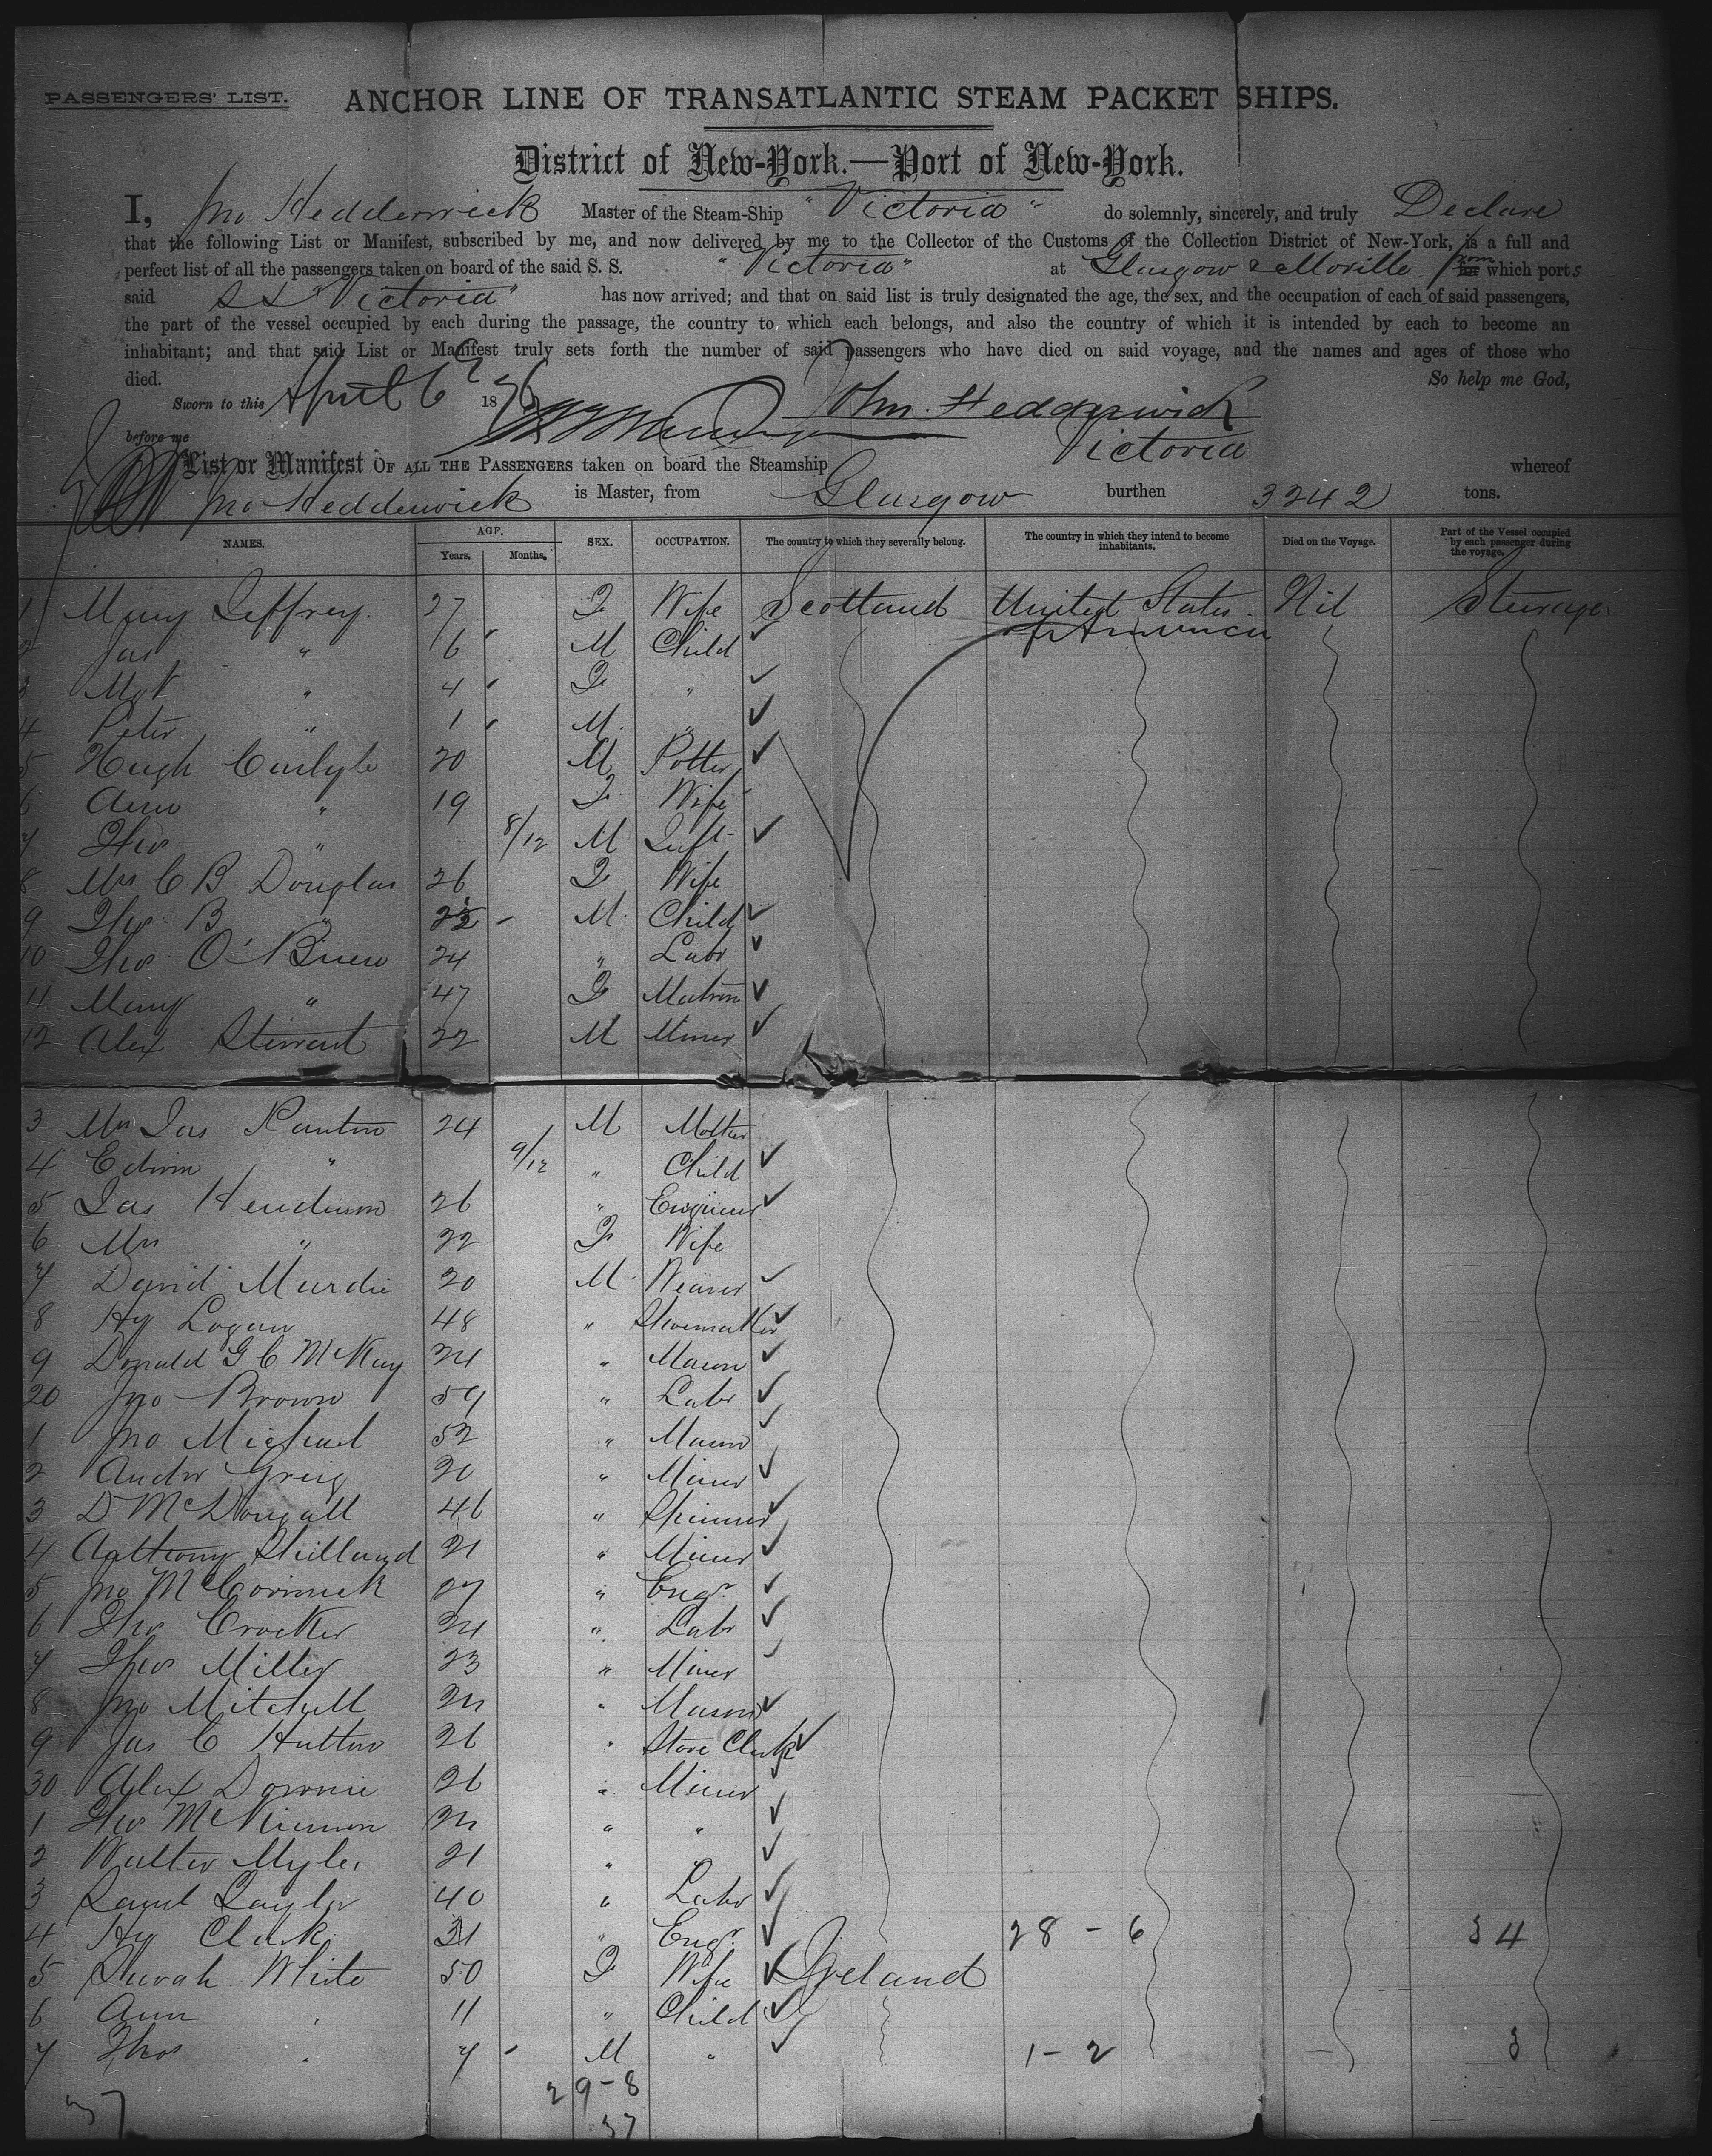 PASSENGERS' LIST. ANCHOR LINE OF TRANSATLANTIC STEAM PACKET SHIPS.
District of New-York.—Port of New-York.
I, Jno Hedderwick Master of the Steam-Ship "Victoria" do solemnly, sincerely, and truly Declare
that the following List or Manifest, subscribed by me, and now delivered by me to the Collector of the Customs of the Collection District of New-York, is a full and
perfect list of all the passengers taken on board of the said S. S. "Victoria" at Glasgow & Moville from which ports
said SS "Victoria" has now arrived; and that on said list is truly designated the age, the sex, and the occupation of each of said passengers,
the part of the vessel occupied by each during the passage, the country to which each belongs, and also the country of which it is intended by each to become an
inhabitant; and that said List or Manifest truly sets forth the number of said passengers who have died on said voyage, and the names and ages of those who
died. So help me God,
Sworn to this April 6 1876 John Hedderwick
before me
List or Manifest OF ALL THE PASSENGERS taken on board the Steamship Victoria whereof
Jno Hedderwick is Master, from Glasgow burthen 3242 tons.
NAMES. AGE. Years. Months. SEX. OCCUPATION. The country to which they severally belong. The country in which they intend to become inhabitants. Died on the Voyage. Part of the Vessel occupied by each passenger during the voyage.
1 Mary Jeffrey 27 F Wife Scotland United States Nil Steerage
of America
2 Jas " 6 M Child
3 Mgt " 4 F "
4 Peter " 1 M "
5 Hugh Carlyle 20 M Potter
6 Ann " 19 F Wife
7 Thos " 8/12 M Inft
8 Mrs C B Douglas 26 F Wife
9 Thos B " M Child
10 Thos O'Brien 24 " Labr
11 Mary " 47 F Matron
12 Alex Stewart 22 M Miner
3 Mrs Jas Panton 24 M Mother
4 Edwin " 9/12 " Child
5 Jas Henderson 26 " Engineer
6 Mrs " 22 F Wife
7 David Murdie 20 M Weaver
8 Hy Logan 48 " Shoemaker
9 Donald G C McKay 24 " Mason
20 Jno Brown 59 " Labr
1 Jno Michael 52 " Mason
2 Andw Greig 20 " Miner
3 D McDougall 46 " Skinner
4 Anthony 21 " Miner
5 Jno McCormick 27 " Engr
6 Thos Crocker 24 " Labr
7 Thos Miller 23 " Miner
8 Jno Mitchell 24 " Mason
9 Jas C Hutton 26 " Store Clerk
30 Alex Downie 26 " Miner
1 Thos McKinnon 24 " "
2 Walter Myler 21 " "
3 Saml Taylor 40 " Labr
4 Hy Clark 31 " Engr 28 - 6 34
5 Sarah White 50 F Wife Ireland
6 Ann " 11 " Child
7 Thos " 7 M " 1 - 2 3
29-8
37 37